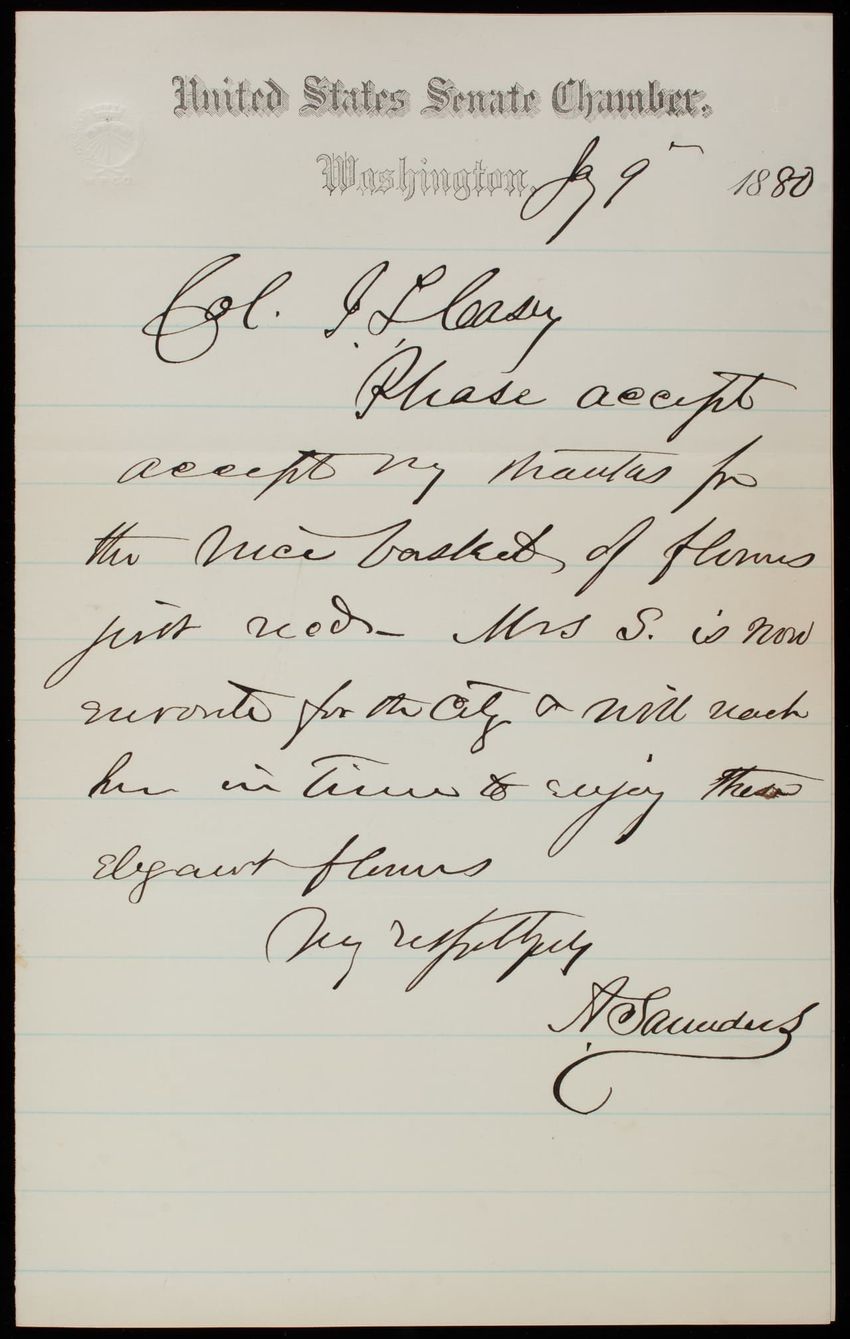 United States Senate Chamber.
Washington, Jay 9 1880
Col. T. L. Casey
Please accept
accept my thanks for
the nice basket of flowers
just recd – Mrs S. is now
enroute for the City & will reach
her in time to enjoy these
elegant flowers
Very respectfully
A Saunders